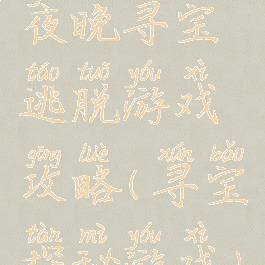 夜晚寻宝
táo tuō yóu xì
逃脱游戏
gōng lüè xún bǎo
攻略(寻宝
tàn mì yóu xì
探秘游戏)